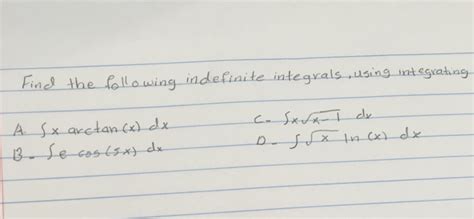 Find the following indefinite integrals, using integrating
A. ∫x arctan(x) dx
B- ∫e cos(5x) dx
C- ∫x√x-1 dx
D- ∫√x ln(x) dx